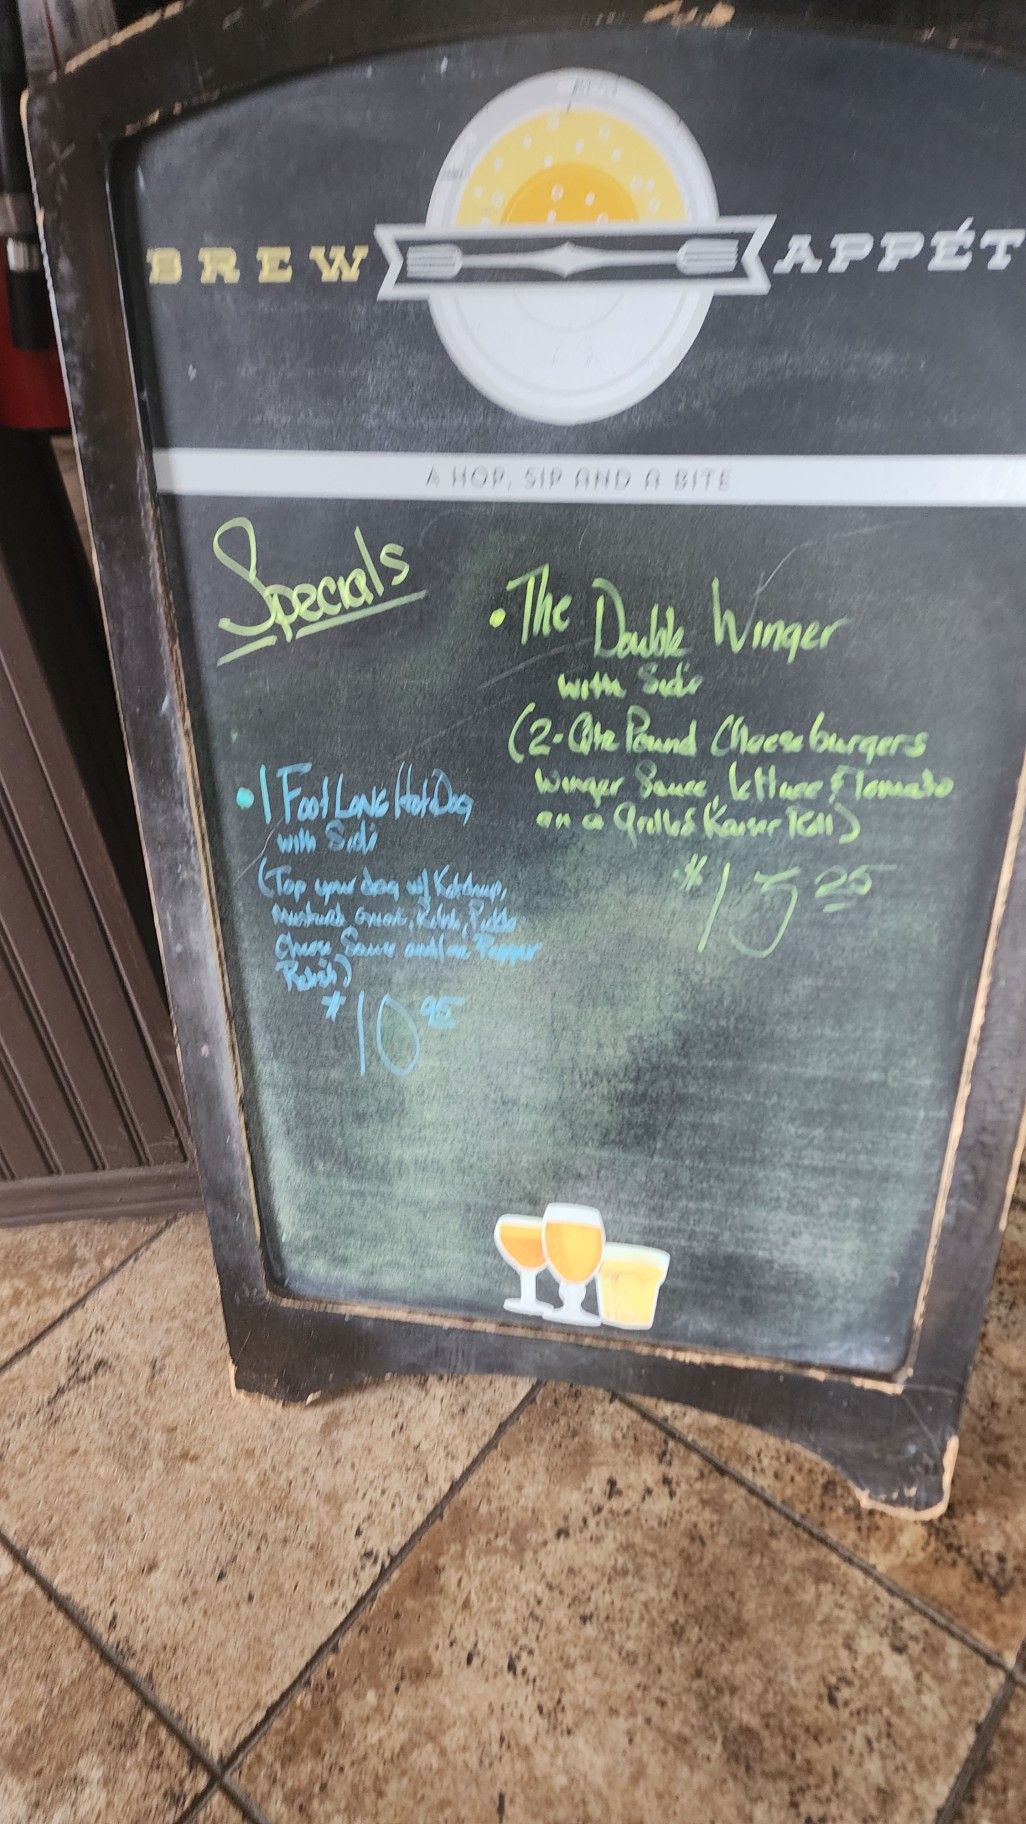 BREW APPÉT
A HOP, SIP AND A BITE
Specials
• The Double Winger
with Side
(2-Qtr Pound Cheeseburgers
Winger Sauce, lettuce & Tomato
on a Grilled Kaiser Roll)
$15 25
• 1 Foot Long Hot Dog
with Side
(Top your dog w/ Ketchup,
mustard, onion, Relish, Pickle
Cheese Sauce and/or Pepper
Relish)
$10 95